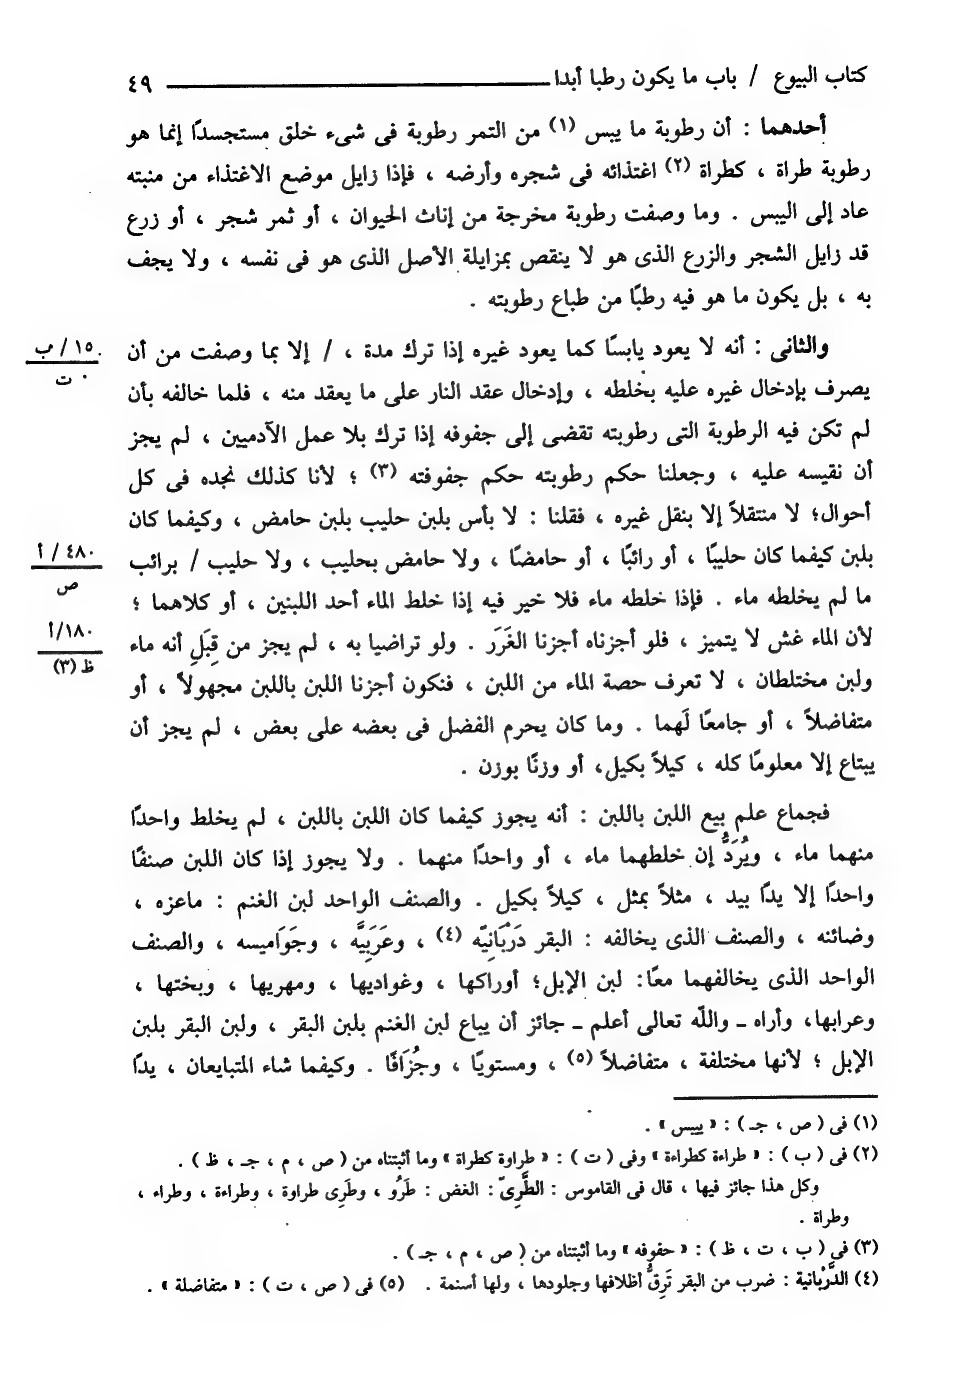 كتاب البيوع / باب ما يكون رطبا أبدا ٤٩
أحدهما : أن رطوبة ما يبس (١) من التمر رطوبة فى شىء خلق مستجسدًا إنما هو
رطوبة طراة ، كطراة (٢) اغتذائه فى شجره وأرضه ، فإذا زايل موضع الاغتذاء من منبته
عاد إلى اليبس . وما وصفت رطوبة مخرجة من إناث الحيوان ، أو ثمر شجر ، أو زرع
قد زايل الشجر والزرع الذى هو لا ينقص بمزايلة الأصل الذى هو فى نفسه ، ولا يجف
به ، بل يكون ما هو فيه رطبًا من طباع رطوبته .
والثانى : أنه لا يعود يابسًا كما يعود غيره إذا ترك مدة ، / إلا بما وصفت من أن
١٥ / ب
ت
يصرف بإدخال غيره عليه بخلطه ، وإدخال عقد النار على ما يعقد منه ، فلما خالفه بأن
لم تكن فيه الرطوبة التى رطوبته تقضى إلى جفوفه إذا ترك بلا عمل الآدميين ، لم يجز
أن نقيسه عليه ، وجعلنا حكم رطوبته حكم جفوفته (٣) ؛ لأنا كذلك نجده فى كل
أحوال؛ لا منتقلاً إلا بنقل غيره ، فقلنا : لا بأس بلبن حليب بلبن حامض ، وكيفما كان
بلبن كيفما كان حليبًا ، أو رائبًا ، أو حامضًا ، ولا حامض بحليب ، ولا حليب / برائب
٤٨٠ / أ
ص
ما لم يخلطه ماء . فإذا خلطه ماء فلا خير فيه إذا خلط الماء أحد اللبنين ، أو كلاهما ؛
لأن الماء غش لا يتميز ، فلو أجزناه أجزنا الغَرَر . ولو تراضيا به ، لم يجز من قِبَلِ أنه ماء
١٨٠/أ
ظ (٣)
ولبن مختلطان ، لا تعرف حصة الماء من اللبن ، فنكون أجزنا اللبن باللبن مجهولاً ، أو
متفاضلاً ، أو جامعًا لَهما . وما كان يحرم الفضل فى بعضه على بعض ، لم يجز أن
يبتاع إلا معلومًا كله ، كيلاً بكيل، أو وزنًا بوزن .
فجماع علم بيع اللبن باللبن : أنه يجوز كيفما كان اللبن باللبن ، لم يخلط واحدًا
منهما ماء ، ويُرَدُّ إن خلطهما ماء ، أو واحدًا منهما . ولا يجوز إذا كان اللبن صنفًا
واحدًا إلا يدًا بيد ، مثلاً بمثل ، كيلاً بكيل . والصنف الواحد لبن الغنم : ماعزه ،
وضائنه ، والصنف الذى يخالفه : البقر دَرْبَانِيّه (٤) ، وعَرَبِيَّه ، وجَوَاميسه ، والصنف
الواحد الذى يخالفهما معًا: لبن الإبل؛ أوراكها ، وغواديها ، ومهريها ، وبختها ،
وعرابها، وأراه ــ واللّه تعالى أعلم ــ جائز أن يباع لبن الغنم بلبن البقر ، ولبن البقر بلبن
الإبل ؛ لأنها مختلفة ، متفاضلاً (٥) ، ومستويًا ، وجُزَافًا . وكيفما شاء المتبايعان ، يدًا
(١) فى ( ص ، جـ ) : « ييبس » .
(٢) فى ( ب ) : « طراءة كطراءة » وفى ( ت ) : « طراوة كطراة » وما أثبتناه من ( ص ، م ، جـ ، ظ ) .
وكل هذا جائز فيها ، قال فى القاموس : الطَّرِىّ : الغض : طَرُو ، وطَرِى طراوة ، وطراءة ، وطراء ،
وطراة .
(٣) فى ( ب ، ت ، ظ ) : « حقوفه » وما أثبتناه من ( ص ، م ، جـ ) .
(٤) الدَّرْبانية : ضرب من البقر تَرِقُّ أظلافها وجلودها ، ولها أسنمة . (٥) فى ( ص ، ت ) : « متفاضلة » .